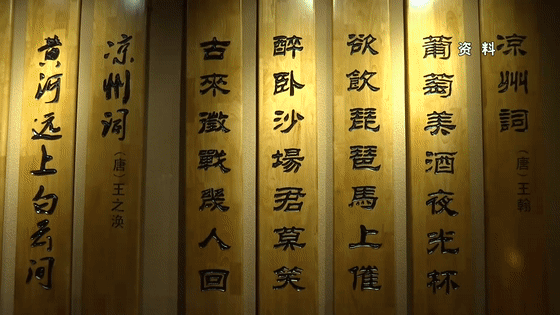 凉州詞
（唐）王翰
葡萄美酒夜光杯
欲飲琵琶馬上催
醉卧沙場君莫笑
古來徵戰幾人回
凉州詞
（唐）王之涣
黄河远上白云间
资料